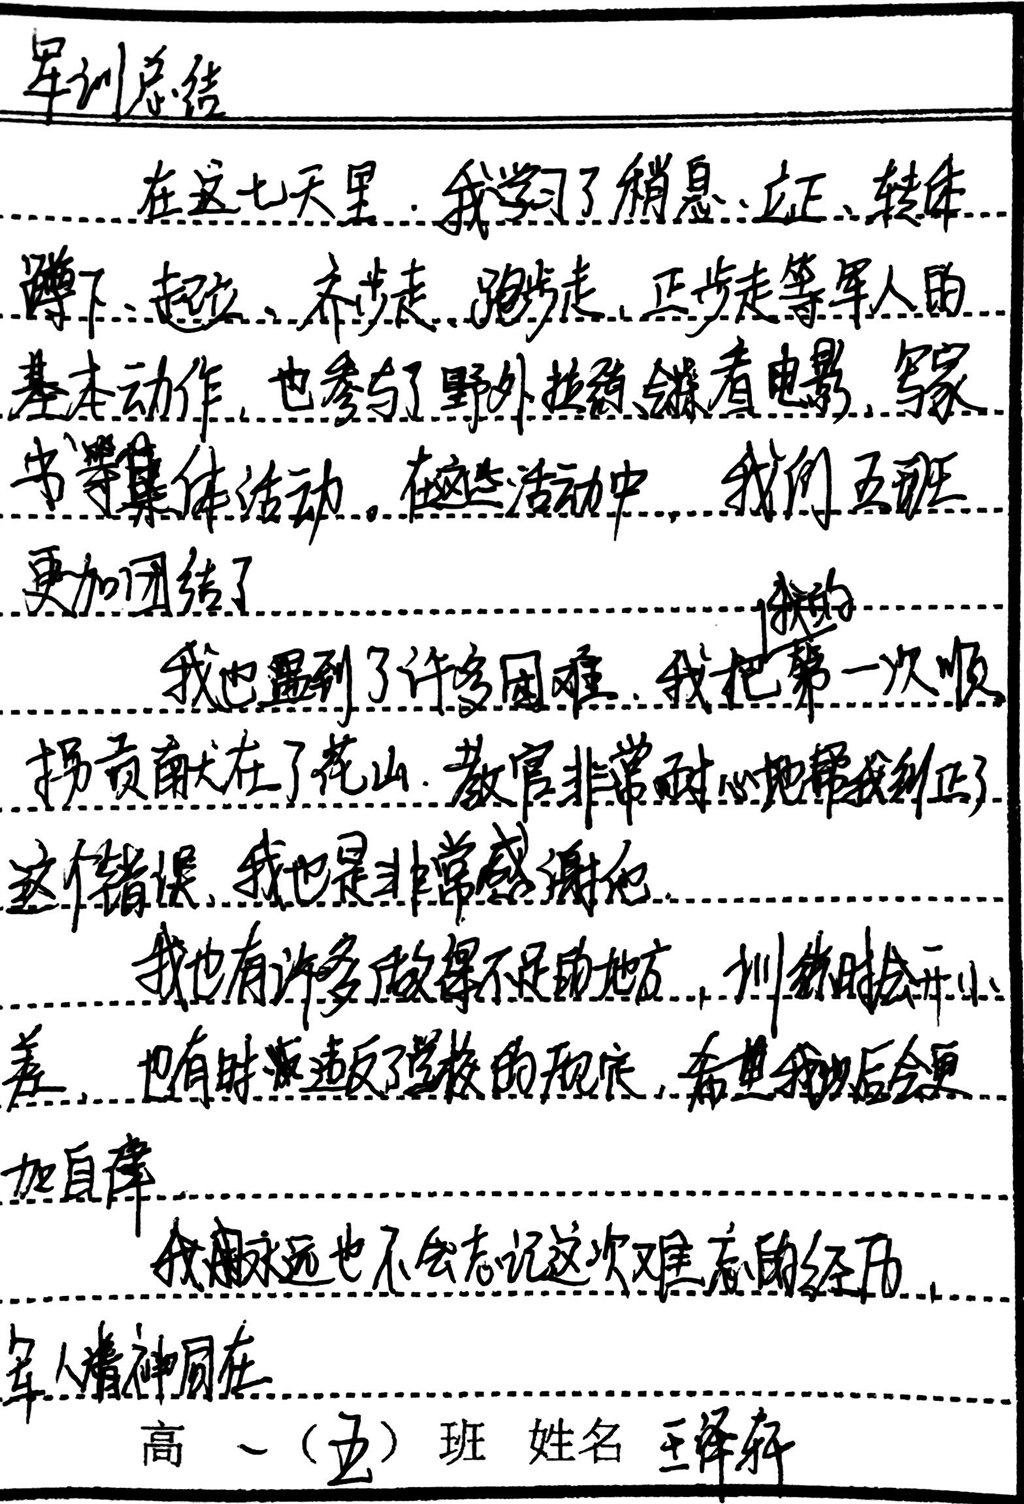 军训总结
在这七天里，我学习了稍息、立正、转体
蹲下、起立、齐步走、跑步走、正步走等军人的
基本动作，也参与了野外拉练、观看电影，写家
书等集体活动。在这些活动中，我们五班
更加团结了
我的
我也遇到了许多困难，我把第一次顺
拐贡献在了花山．教官非常耐心地帮我纠正了
这个错误，我也是非常感谢他．
我也有许多做得不足的地方，训练时会开小
差，也有时违反了学校的规定，希望我以后会更
加自律
我永远也不会忘记这次难忘的经历，
军人精神同在
高一（五）班 姓名 王泽轩